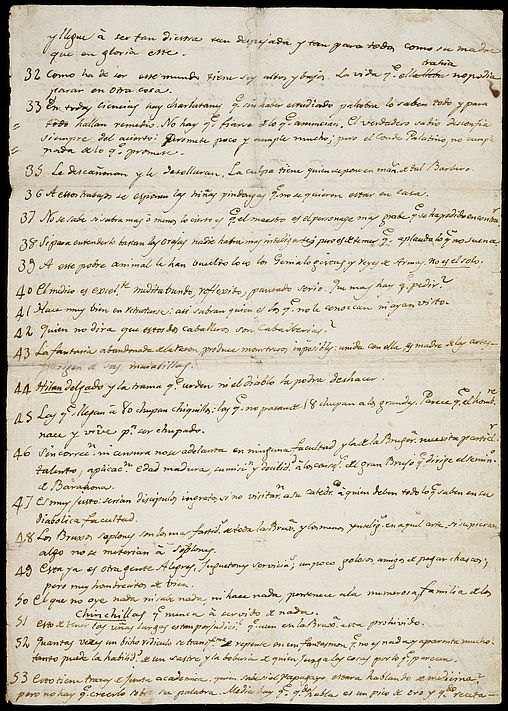 y llegue à ser tan diestra tan despejada y tan para todos como su madre
que en gloria este.
32 Como ha de ser este mundo tiene sus altos y bajos. La vida qᵉ ella trahia no podia
parar en otra cosa
33 En todas ciencias hay charlatanes qᵉ sin haber estudiado palabra lo saben todo y para
todo hallan remedio. No hay qᵉ fiarse de lo qᵉ anuncian. El verdadero sabio desconfia
siempre del acierto. Promete poco y cumple mucho; pero el Conde Palatino, no cumple
nada de lo qᵉ promete.
35 Le descañonan y le desolluran. La culpa tiene quien se pone en man.ˢ de tal Barbero.
36 A estos trabajos se esponen las niñas pindongas qᵉ no se quieren estar en casa.
37 No se sabe si sabra mas ò menos, lo cierto es qᵉ el maestro es el personage mas grabe qᵉ se ha podido encontrar
38 Si para entenderlo bastan las orejas nadie habra mas inteligente; pero es de temer qᵉ aplauda lo qᵉ no suena
39 A este pobre animal le han vuelto loco los Genialogistas y Reyes de Armas. No es el solo.
40 El medico es excel.ᵗᵉ meditabundo, reflexivo, pausado serio. Que mas hay qᵉ pedir?
41 Hace muy bien en retratarse: asi sabran quien es los qᵉ no le conozcan ni ayan visto.
42 Quien no dira que estos dos caballeros son Caballerias?
43 La fantasia abandonada de la razon, produce monstruos imposibles: unida con ella, es madre de las artes
y origen de sus marabillas.
44 Hilan delgado y la trama qᵉ urden ni el diablo la podra deshacer.
45 Las qᵉ llegan à 80 chupan chiquillos; las qᵉ no pasan de 18 chupan a los grandes. Parece qᵉ el homb.ʳᵉ
nace y vive pᵃ ser chupado.
46 Sin correc.ⁿ ni censura no se adelanta en ninguna facultad y la de la Bruger.ᵃ necesita partic.ʳ
talento, aplicac.ⁿ edad madura, sumisi.ⁿ y docilid.ᵈ a los consej.ˢ de gran Brujo qᵉ dirige el semin.º
de Barahona.
47 Es muy justo: serian discipulos ingratos, si no visitar.ⁿ a su catedr.º à quien deben todo lo qᵉ saben en su
diabolica facultad.
48 Los Bruxos soplones son los mas fastid.ˢ de toda la Brux.ᵃ y los menos yntelig.ˢ en aquel arte, si supieran
algo no se meterian à soplones.
49 Esta ya es otra gente Alegres, juguetones servicia.ˢ; un poco golosos amigos de pegar chascos;
pero muy hombrecitos de bien.
50 El que no oye nada ni sabe nada, ni hace nada, pertenece a la numerosa familia de los
Chinchillas qᵉ nunca à servido de nada.
51 Esto de tener las uñas largas es tan perjudici.ˡ qᵉ aun en la Brux.ᵃ esta prohivido.
52 Quantas vezes un bicho ridiculo se transf.ᵐᵃ de repente en un fantasmon qᵉ no es nada y aparenta mucho.
tanto puede la habilid.ᵈ de un sastre y la boberia de quien juzga las cosas por lo qᵉ parecen.
53 Esto tiene trazas de Junta academica. quien sabe si el Papagayo estara hablando de medicina?
pero no hay qᵉ creerlo sobre su palabra. Medico hay qᵉ qᵈº habla es un pico de oro y qᵈº receta—